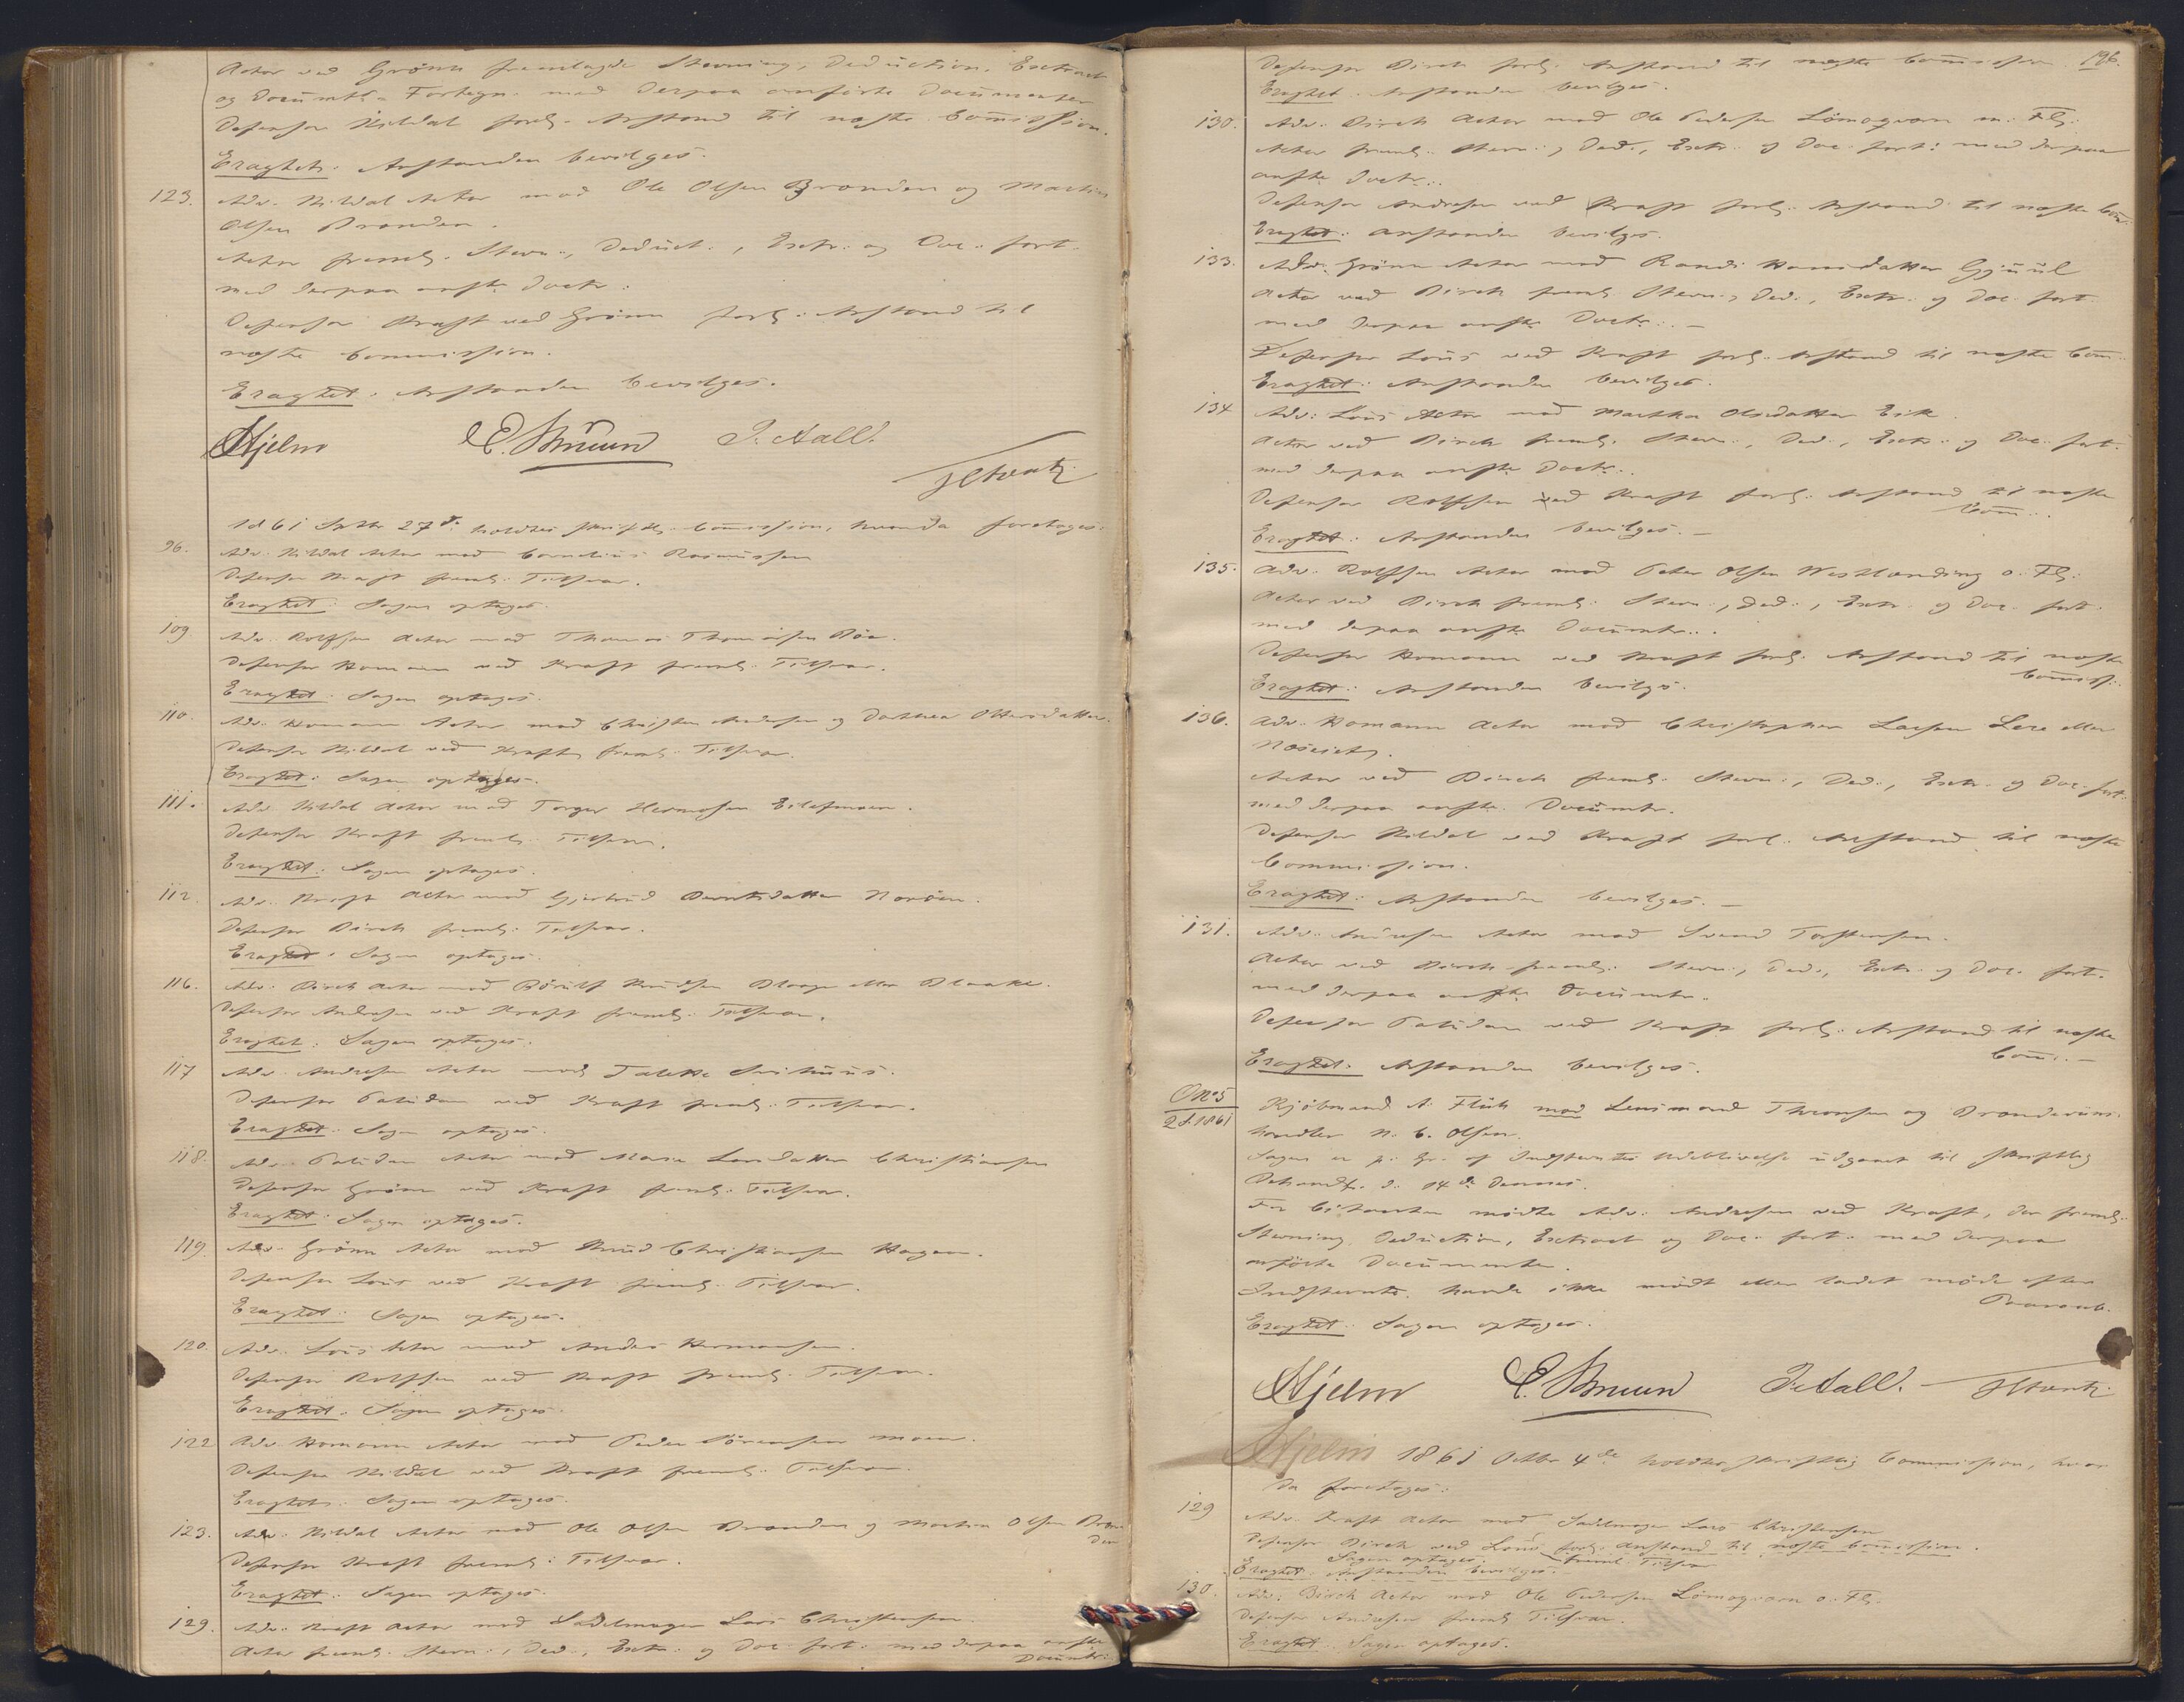 Actor ved Grönn fremlagde Stevning, Deduction, Extract
og Documts-Fortegn. med derpaa anførte Documenter
Defensor Kildal forl. Anstand til næste Commission.
Eragtet: Anstanden bevilges.
123. Adv. Kildal Actor mod Ole Olsen Brænden og Martin
Olsen Brænden.
Actor freml. Stevn:, Deduct:, Extr: og Doc: fort.
med derpaa anfte Doctr:
Defensor Kraft ved Grönn forl: Anstand til
næste Commission.
Eragtet: Anstanden bevilges.
Hjelm E. Bruun J. Aall.
1861 Septbr 27de holdtes skriftl. Commission, hvorda foretages:
96. Adv. Kildal Actor mod Cornelius Rasmussen
Defensor Kraft freml: Tilsvar.
Eragtet: Sagen optages.
109. Adv. Rolfsen Actor mod Thomas Thomasen Böe.
Defensor Homann ved Kraft freml: Tilsvar.
Eragtet: Sagen optages.
110. Adv. Homann Actor mod Christen Andersen og Dorthea Ottersdatter.
Defensor Kildal ved Kraft freml: Tilsvar.
Eragtet: Sagen optages.
111. Adv. Kildal Actor mod Torger Hermosen
Defensor Kraft freml: Tilsvar.
Eragtet: Sagen optages.
112. Adv. Kraft Actor mod Gjertrud Berntsdatter
Defensor Birch freml: Tilsvar.
Eragtet: Sagen optages.
116. Adv. Birch Actor mod Knudsen eller
Defensor Andresen ved Kraft freml: Tilsvar.
Eragtet: Sagen optages.
117 Adv. Andresen Actor mod
Defensor ved Kraft freml: Tilsvar.
Eragtet: Sagen optages.
118. Adv. Actor mod Maria Larsdatter Christiansen
Defensor Grönn ved Kraft freml: Tilsvar.
Eragtet: Sagen optages.
119. Adv. Grönn Actor mod Knud Christiansen Hagen.
Defensor Lous ved Kraft freml: Tilsvar.
Eragtet: Sagen optages.
120. Adv. Lous Actor mod Anders Hermansen.
Defensor Rolfsen ved Kraft freml: Tilsvar.
Eragtet: Sagen optages.
122 Adv. Homann Actor mod Peder Sörensen Moen.
Defensor Kildal ved Kraft freml: Tilsvar.
Eragtet: Sagen optages.
123. Adv: Kildal Actor mod Ole Olsen Brænden og Martin Olsen Bræn
den
Defensor Kraft freml: Tilsvar.
Eragtet: Sagen optages.
129. Adv: Kraft Actor mod Sadelmager Lars Christensen
Actor freml. Stevn:, Ded:, Extr: og Doc: fort: med derpaa anfte
Documtr:
196.
Defensor Birch forl. Anstand til næste Commission.
Eragtet. Anstanden bevilges.
130. Adv. Birch Actor mod Ole Pedersen Lömoqvern m. Fl:
Actor freml: Stevn:, Ded:, Extr: og Doc: fort: med derpaa
anfte Doctr:.
Defensor Andresen ved Kraft forl: Anstand til næste Com:
Eragtet: Anstanden bevilges.
133. Adv: Grönn Actor mod Randi Hansdatter Gjuul
Actor ved Birch freml. Stevn:, Ded:, Extr: og Doc: fort.
med derpaa anfte Doctr:. —
Defensor Lous ved Kraft forl. Anstand til næste Com:
Eragtet: Anstanden bevilges.
134 Adv: Lous Actor mod Martha Olsdatter Eik.
Actor ved Birch freml. Stevn:, Ded:, Extr: og Doc: fort.
med derpaa anfte Doctr:.
Defensor Rolfsen ved Kraft forl: Anstand til næste
Com:.
Eragtet: Anstanden bevilges. —
135. Adv. Rolfsen Actor mod Peter Olsen Westlænding o. Fl:
Actor ved Birch freml: Stevn:, Ded:, Extr: og Doc: fort.
med derpaa anfte Documtr:.
Defensor Homann ved Kraft forl: Anstand til næste
Commiss:.
Eragtet: Anstanden bevilges.
136. Adv. Homann Actor mod Christopher Larsen Lere eller
Noseiet.
Actor ved Birch freml: Stevn:, Ded:, Extr: og Doc: fort:
med derpaa anfte Documtr.
Defensor Kildal ved Kraft forl: Anstand til næste
Commission.
Eragtet: Anstanden bevilges. —
131. Adv. Andresen Actor mod Svend Torstensen.
Actor ved Birch freml: Stevn:, Ded:, Extr: og Doc: fort.
med derpaa anfte Documtr:.
Defensor ved Kraft forl: Anstand til næste
Com:. —
Eragtet: Anstanden bevilges.
O No 5
2 S. 1861
Kjöbmand A. mod Lensmand Thronsen og Brændeviins-
handler N. C. Olsen.
Sagen er p. Gr. af Indstevntes Udeblivelse udgaaet til skriftlig
Behandl. d. 14de dennes.
For Citanten mödte Adv. Andresen ved Kraft, der freml:
Stevning, Deduction, Extract og Doc: fort: med derpaa
anførte Documenter.
Indstevnte havde ikke mödt eller ladet möde efter
Paaraab.
Eragtet: Sagen optages.
Hjelm E. Bruun J. Aall.
Hjelm 1861 Octbr 4de holdtes skriftlig Commission, hvor
da foretages:
129 Adv. Kraft Actor mod Sadelmager Lars Christensen
Defensor Birch ved Lous forl: Anstand til næste Commission.
Sagen optages. freml. Tilsvar
Eragtet: Anstanden bevilges.
130. Adv: Birch Actor mod Ole Pedersen Lömoqvern o. Fl:
Defensor Andresen freml Tilsvar.
Eragtet: Sagen optages.